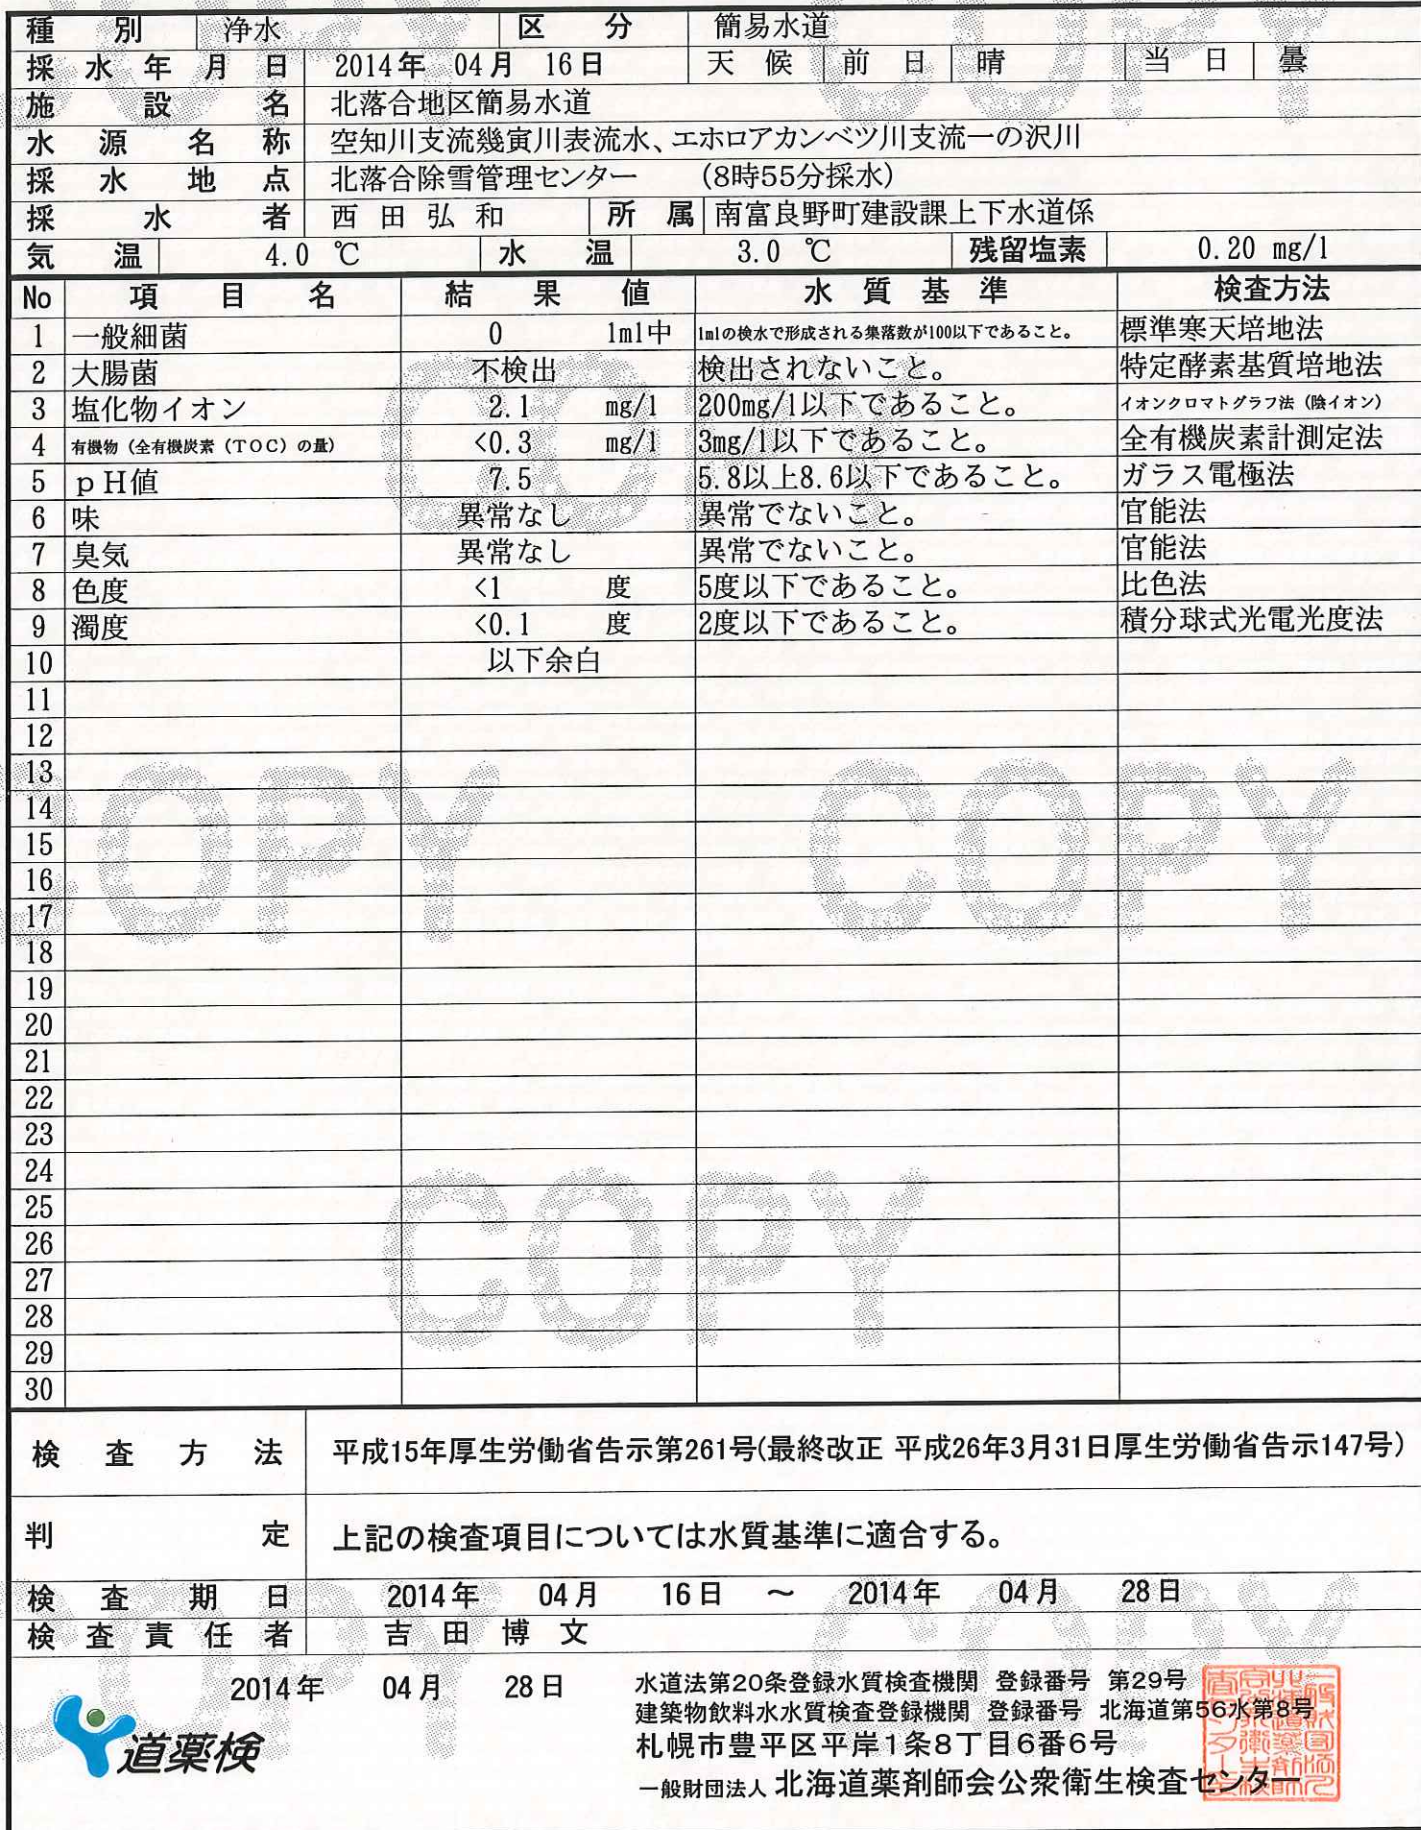 種別 浄水 区分 簡易水道
採水年月日 2014年 04月 16日 天候 前日 晴 当日 曇
施設名 北落合地区簡易水道
水源名称 空知川支流幾寅川表流水、エホロアカンベツ川支流一の沢川
採水地点 北落合除雪管理センター (8時55分採水)
採水者 西田弘和 所属 南富良野町建設課上下水道係
気温 4.0 ℃ 水温 3.0 ℃ 残留塩素 0.20 mg/l
No 項目名 結果値 水質基準 検査方法
1 一般細菌 0 1ml中 1mlの検水で形成される集落数が100以下であること。 標準寒天培地法
2 大腸菌 不検出 検出されないこと。 特定酵素基質培地法
3 塩化物イオン 2.1 mg/l 200mg/l以下であること。 イオンクロマトグラフ法(陰イオン)
4 有機物(全有機炭素(TOC)の量) <0.3 mg/l 3mg/l以下であること。 全有機炭素計測定法
5 pH値 7.5 5.8以上8.6以下であること。 ガラス電極法
6 味 異常なし 異常でないこと。 官能法
7 臭気 異常なし 異常でないこと。 官能法
8 色度 <1 度 5度以下であること。 比色法
9 濁度 <0.1 度 2度以下であること。 積分球式光電光度法
10 以下余白
11
12
13
14
15
16
17
18
19
20
21
22
23
24
25
26
27
28
29
30
検査方法 平成15年厚生労働省告示第261号(最終改正 平成26年3月31日厚生労働省告示147号)
判定 上記の検査項目については水質基準に適合する。
検査期日 2014年 04月 16日 ～ 2014年 04月 28日
検査責任者 吉田博文
2014年 04月 28日
水道法第20条登録水質検査機関 登録番号 第29号
建築物飲料水水質検査登録機関 登録番号 北海道第56水第8号
札幌市豊平区平岸1条8丁目6番6号
一般財団法人 北海道薬剤師会公衆衛生検査センター
道薬検
COPY
COPY
COPY
COPY
COPY
COPY
COPY
COPY